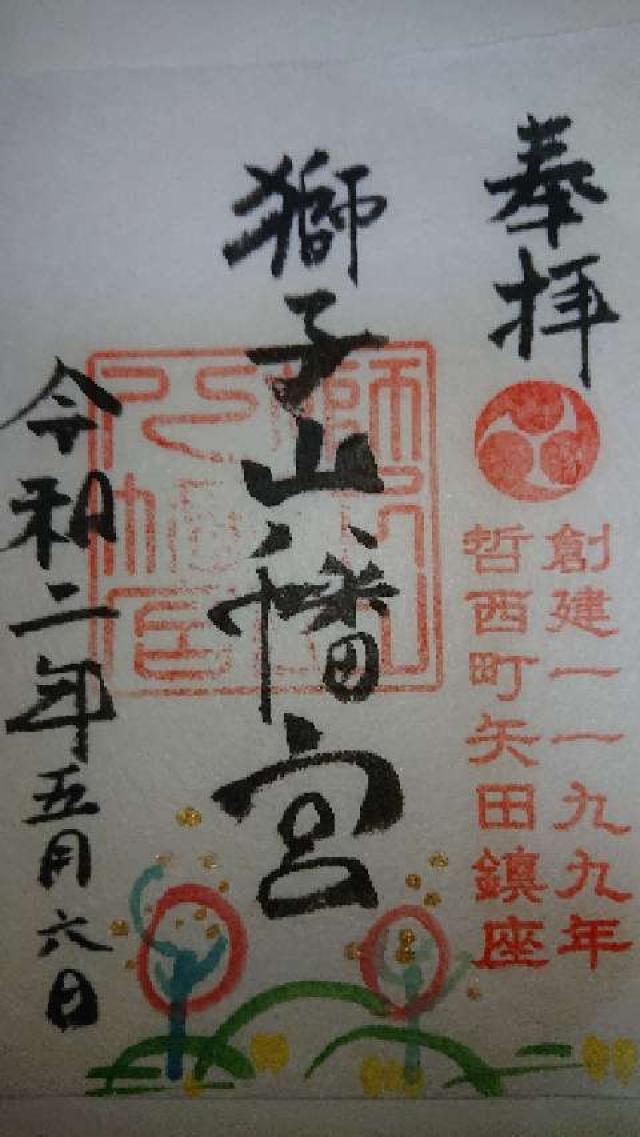 奉拝
創建一一九九年
哲西町矢田鎮座
獅子山八幡宮
獅子山
八幡宮
令和二年五月六日